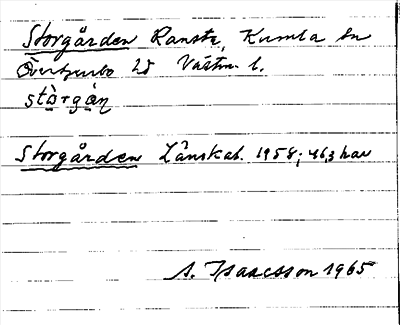 Storgården Ransta, Kumla sn
Övertjurbo hd Västm. l.
stòrgàn
Storgården Länskat. 1958; 46,3 har
A. Isaacsson 1965